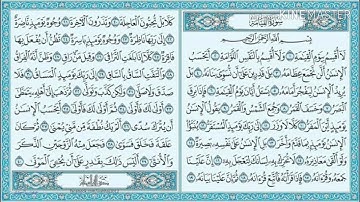 سُورَةُ القِيَامَةِ
بِسْمِ ٱللَّهِ ٱلرَّحْمَٰنِ ٱلرَّحِيمِ
لَآ أُقْسِمُ بِيَوْمِ ٱلْقِيَٰمَةِ ۝ وَلَآ أُقْسِمُ بِٱلنَّفْسِ ٱللَّوَّامَةِ ۝ أَيَحْسَبُ
ٱلْإِنسَٰنُ أَلَّن نَّجْمَعَ عِظَامَهُۥ ۝ بَلَىٰ قَٰدِرِينَ عَلَىٰٓ أَن نُّسَوِّىَ بَنَانَهُۥ ۝ بَلْ يُرِيدُ
ٱلْإِنسَٰنُ لِيَفْجُرَ أَمَامَهُۥ ۝ يَسْـَٔلُ أَيَّانَ يَوْمُ ٱلْقِيَٰمَةِ ۝ فَإِذَا بَرِقَ ٱلْبَصَرُ
۝ وَخَسَفَ ٱلْقَمَرُ ۝ وَجُمِعَ ٱلشَّمْسُ وَٱلْقَمَرُ ۝ يَقُولُ ٱلْإِنسَٰنُ
يَوْمَئِذٍ أَيْنَ ٱلْمَفَرُّ ۝ كَلَّا لَا وَزَرَ ۝ إِلَىٰ رَبِّكَ يَوْمَئِذٍ ٱلْمُسْتَقَرُّ ۝ يُنَبَّؤُا۟
ٱلْإِنسَٰنُ يَوْمَئِذٍۭ بِمَا قَدَّمَ وَأَخَّرَ ۝ بَلِ ٱلْإِنسَٰنُ عَلَىٰ نَفْسِهِۦ بَصِيرَةٌ
۝ وَلَوْ أَلْقَىٰ مَعَاذِيرَهُۥ ۝ لَا تُحَرِّكْ بِهِۦ لِسَانَكَ لِتَعْجَلَ بِهِۦٓ ۝ إِنَّ عَلَيْنَا
جَمْعَهُۥ وَقُرْءَانَهُۥ ۝ فَإِذَا قَرَأْنَٰهُ فَٱتَّبِعْ قُرْءَانَهُۥ ۝ ثُمَّ إِنَّ عَلَيْنَا بَيَانَهُۥ ۝
كَلَّا بَلْ تُحِبُّونَ ٱلْعَاجِلَةَ ۝ وَتَذَرُونَ ٱلْءَاخِرَةَ ۝ وُجُوهٌ يَوْمَئِذٍ نَّاضِرَةٌ
۝ إِلَىٰ رَبِّهَا نَاظِرَةٌ ۝ وَوُجُوهٌ يَوْمَئِذٍۭ بَاسِرَةٌ ۝ تَظُنُّ أَن يُفْعَلَ بِهَا
فَاقِرَةٌ ۝ كَلَّآ إِذَا بَلَغَتِ ٱلتَّرَاقِىَ ۝ وَقِيلَ مَنْ رَاقٍ ۝ وَظَنَّ أَنَّهُ ٱلْفِرَاقُ
۝ وَٱلْتَفَّتِ ٱلسَّاقُ بِٱلسَّاقِ ۝ إِلَىٰ رَبِّكَ يَوْمَئِذٍ ٱلْمَسَاقُ ۝ فَلَا صَدَّقَ وَلَا
صَلَّىٰ ۝ وَلَٰكِن كَذَّبَ وَتَوَلَّىٰ ۝ ثُمَّ ذَهَبَ إِلَىٰٓ أَهْلِهِۦ يَتَمَطَّىٰٓ ۝
أَوْلَىٰ لَكَ فَأَوْلَىٰ ۝ ثُمَّ أَوْلَىٰ لَكَ فَأَوْلَىٰٓ ۝ أَيَحْسَبُ ٱلْإِنسَٰنُ
أَن يُتْرَكَ سُدًى ۝ أَلَمْ يَكُ نُطْفَةً مِّن مَّنِىٍّ يُمْنَىٰ ۝ ثُمَّ كَانَ
عَلَقَةً فَخَلَقَ فَسَوَّىٰ ۝ فَجَعَلَ مِنْهُ ٱلزَّوْجَيْنِ ٱلذَّكَرَ
وَٱلْأُنثَىٰٓ ۝ أَلَيْسَ ذَٰلِكَ بِقَٰدِرٍ عَلَىٰٓ أَن يُحْۦِىَ ٱلْمَوْتَىٰ ۝
KINEMASTER